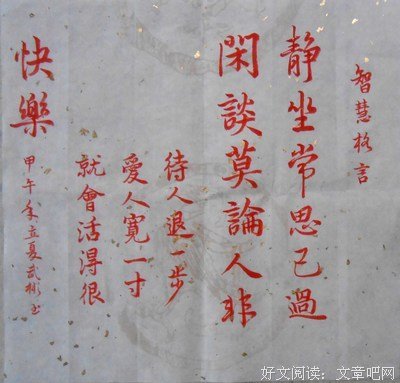 智慧格言
静坐常思已過
閑談莫論人非
待人退一步
愛人寬一寸
就會活得很
快樂
甲午年立夏武彬书
好文阅读：文章吧网